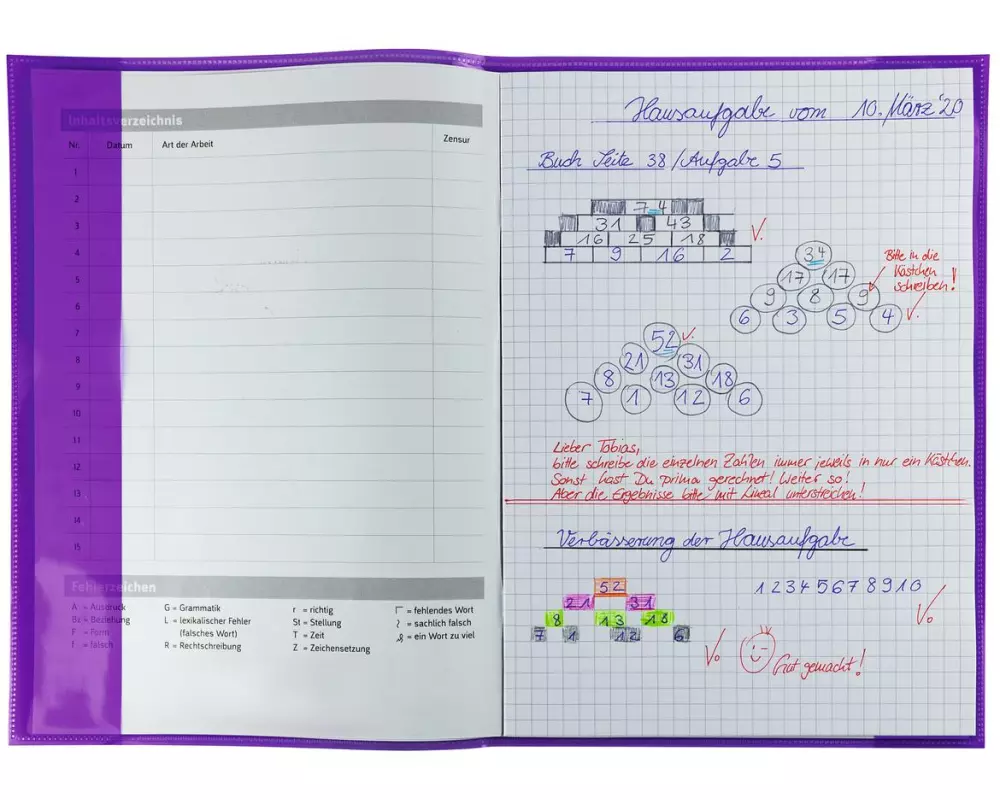 Inhaltsverzeichnis
Nr. Datum Art der Arbeit Zensur
1
2
3
4
5
6
7
8
9
10
11
12
13
14
15
Fehlerzeichen
A = Ausdruck G = Grammatik r = richtig Γ = fehlendes Wort
Bz = Beziehung L = lexikalischer Fehler St = Stellung = sachlich falsch
F = Form (falsches Wort) T = Zeit = ein Wort zu viel
f = falsch R = Rechtschreibung Z = Zeichensetzung
Hausaufgabe vom 10. März '20
Buch Seite 38 / Aufgabe 5
74
31 43
16 25 18
7 9 16 2
34
17 17
9 8 9
6 3 5 4
Bitte in die
Kästchen
schreiben!
52
21 31
8 13 18
7 1 12 6
Lieber Tobias,
bitte schreibe die einzelnen Zahlen immer jeweils in nur ein Kästchen.
Sonst hast Du prima gerechnet! Weiter so!
Aber die Ergebnisse bitte mit Lineal unterstreichen!
Verbässerung der Hausaufgabe
52
21 31
8 13 18
7 1 12 6
1 2 3 4 5 6 7 8 9 10
Gut gemacht!